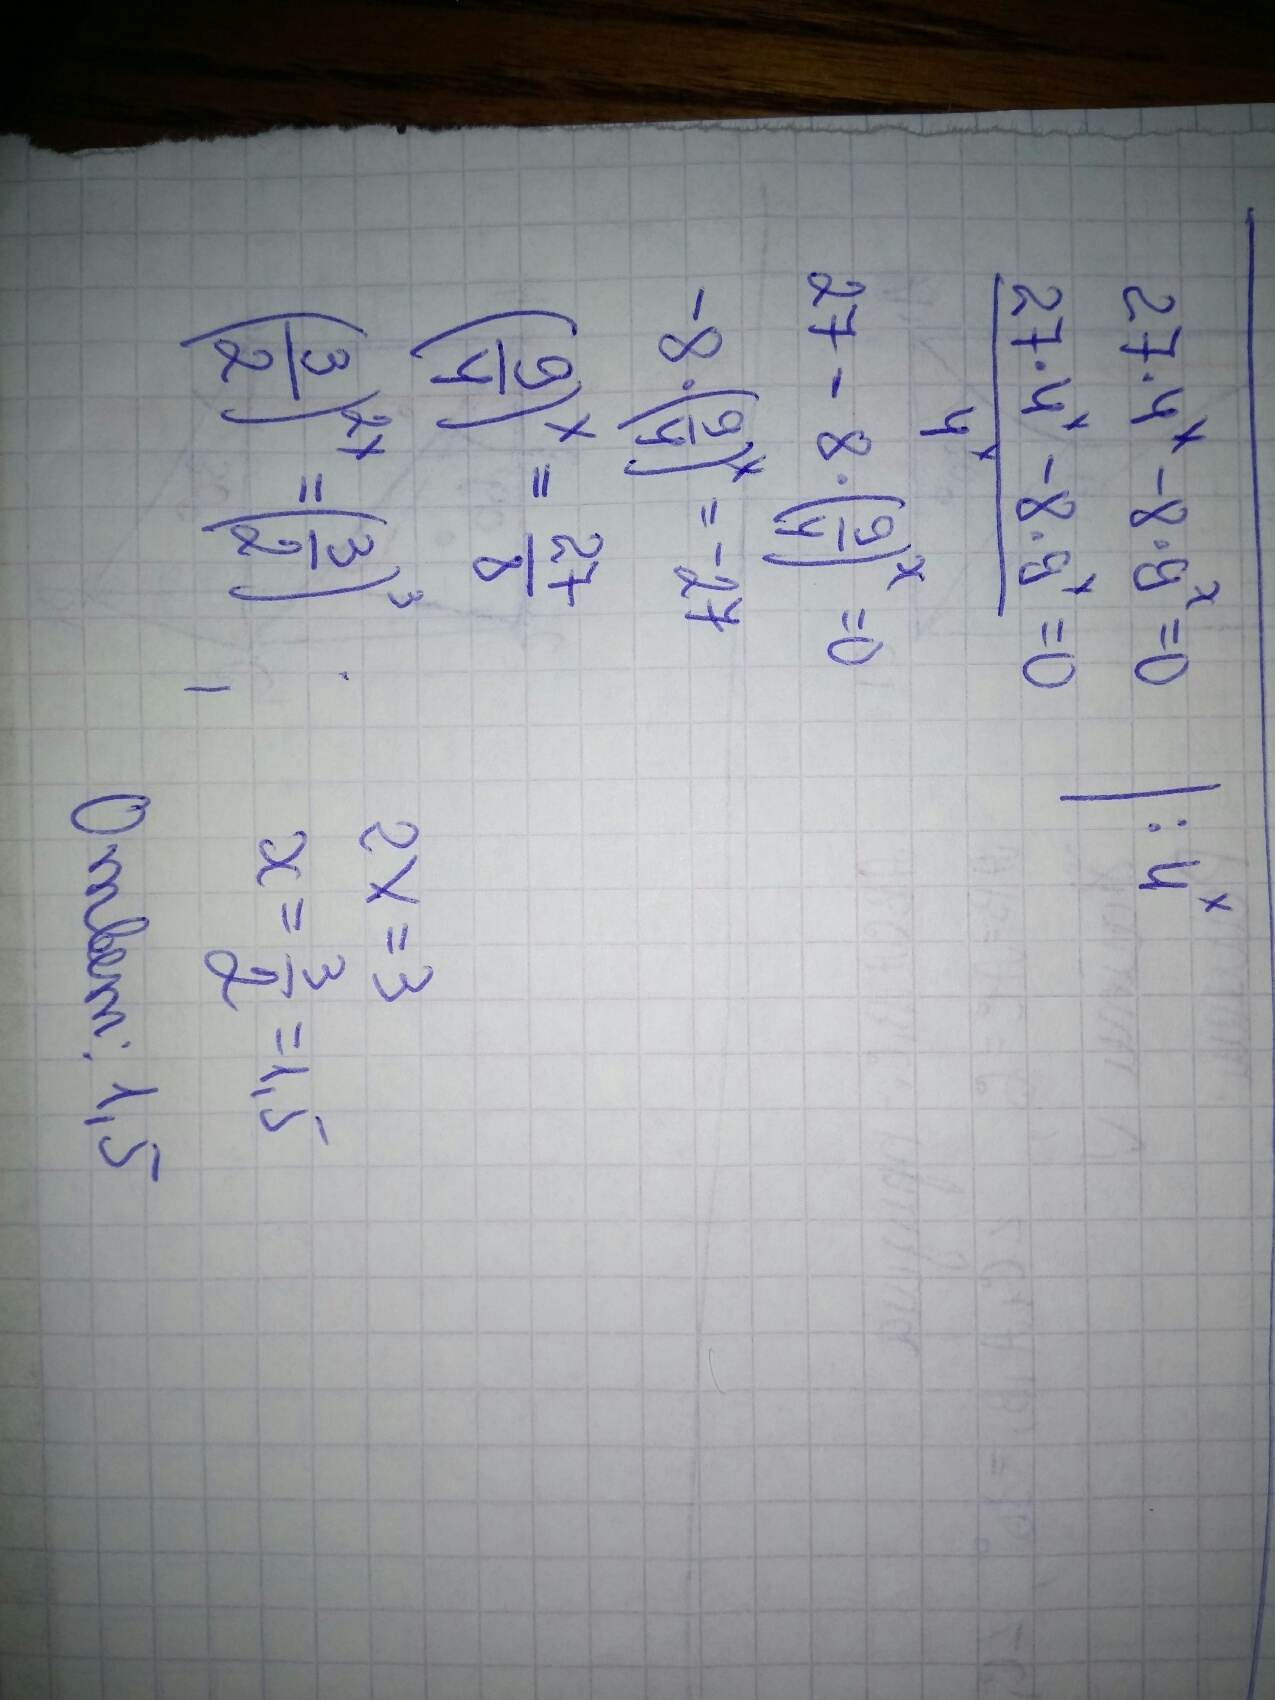 27·4ˣ-8·9ˣ=0 |:4ˣ
27·4ˣ-8·9ˣ/4ˣ=0
27-8·(9/4)ˣ=0
-8·(9/4)ˣ=-27
(9/4)ˣ=27/8
(3/2)²ˣ=(3/2)³
2x=3
x=3/2=1,5
Ответ: 1,5